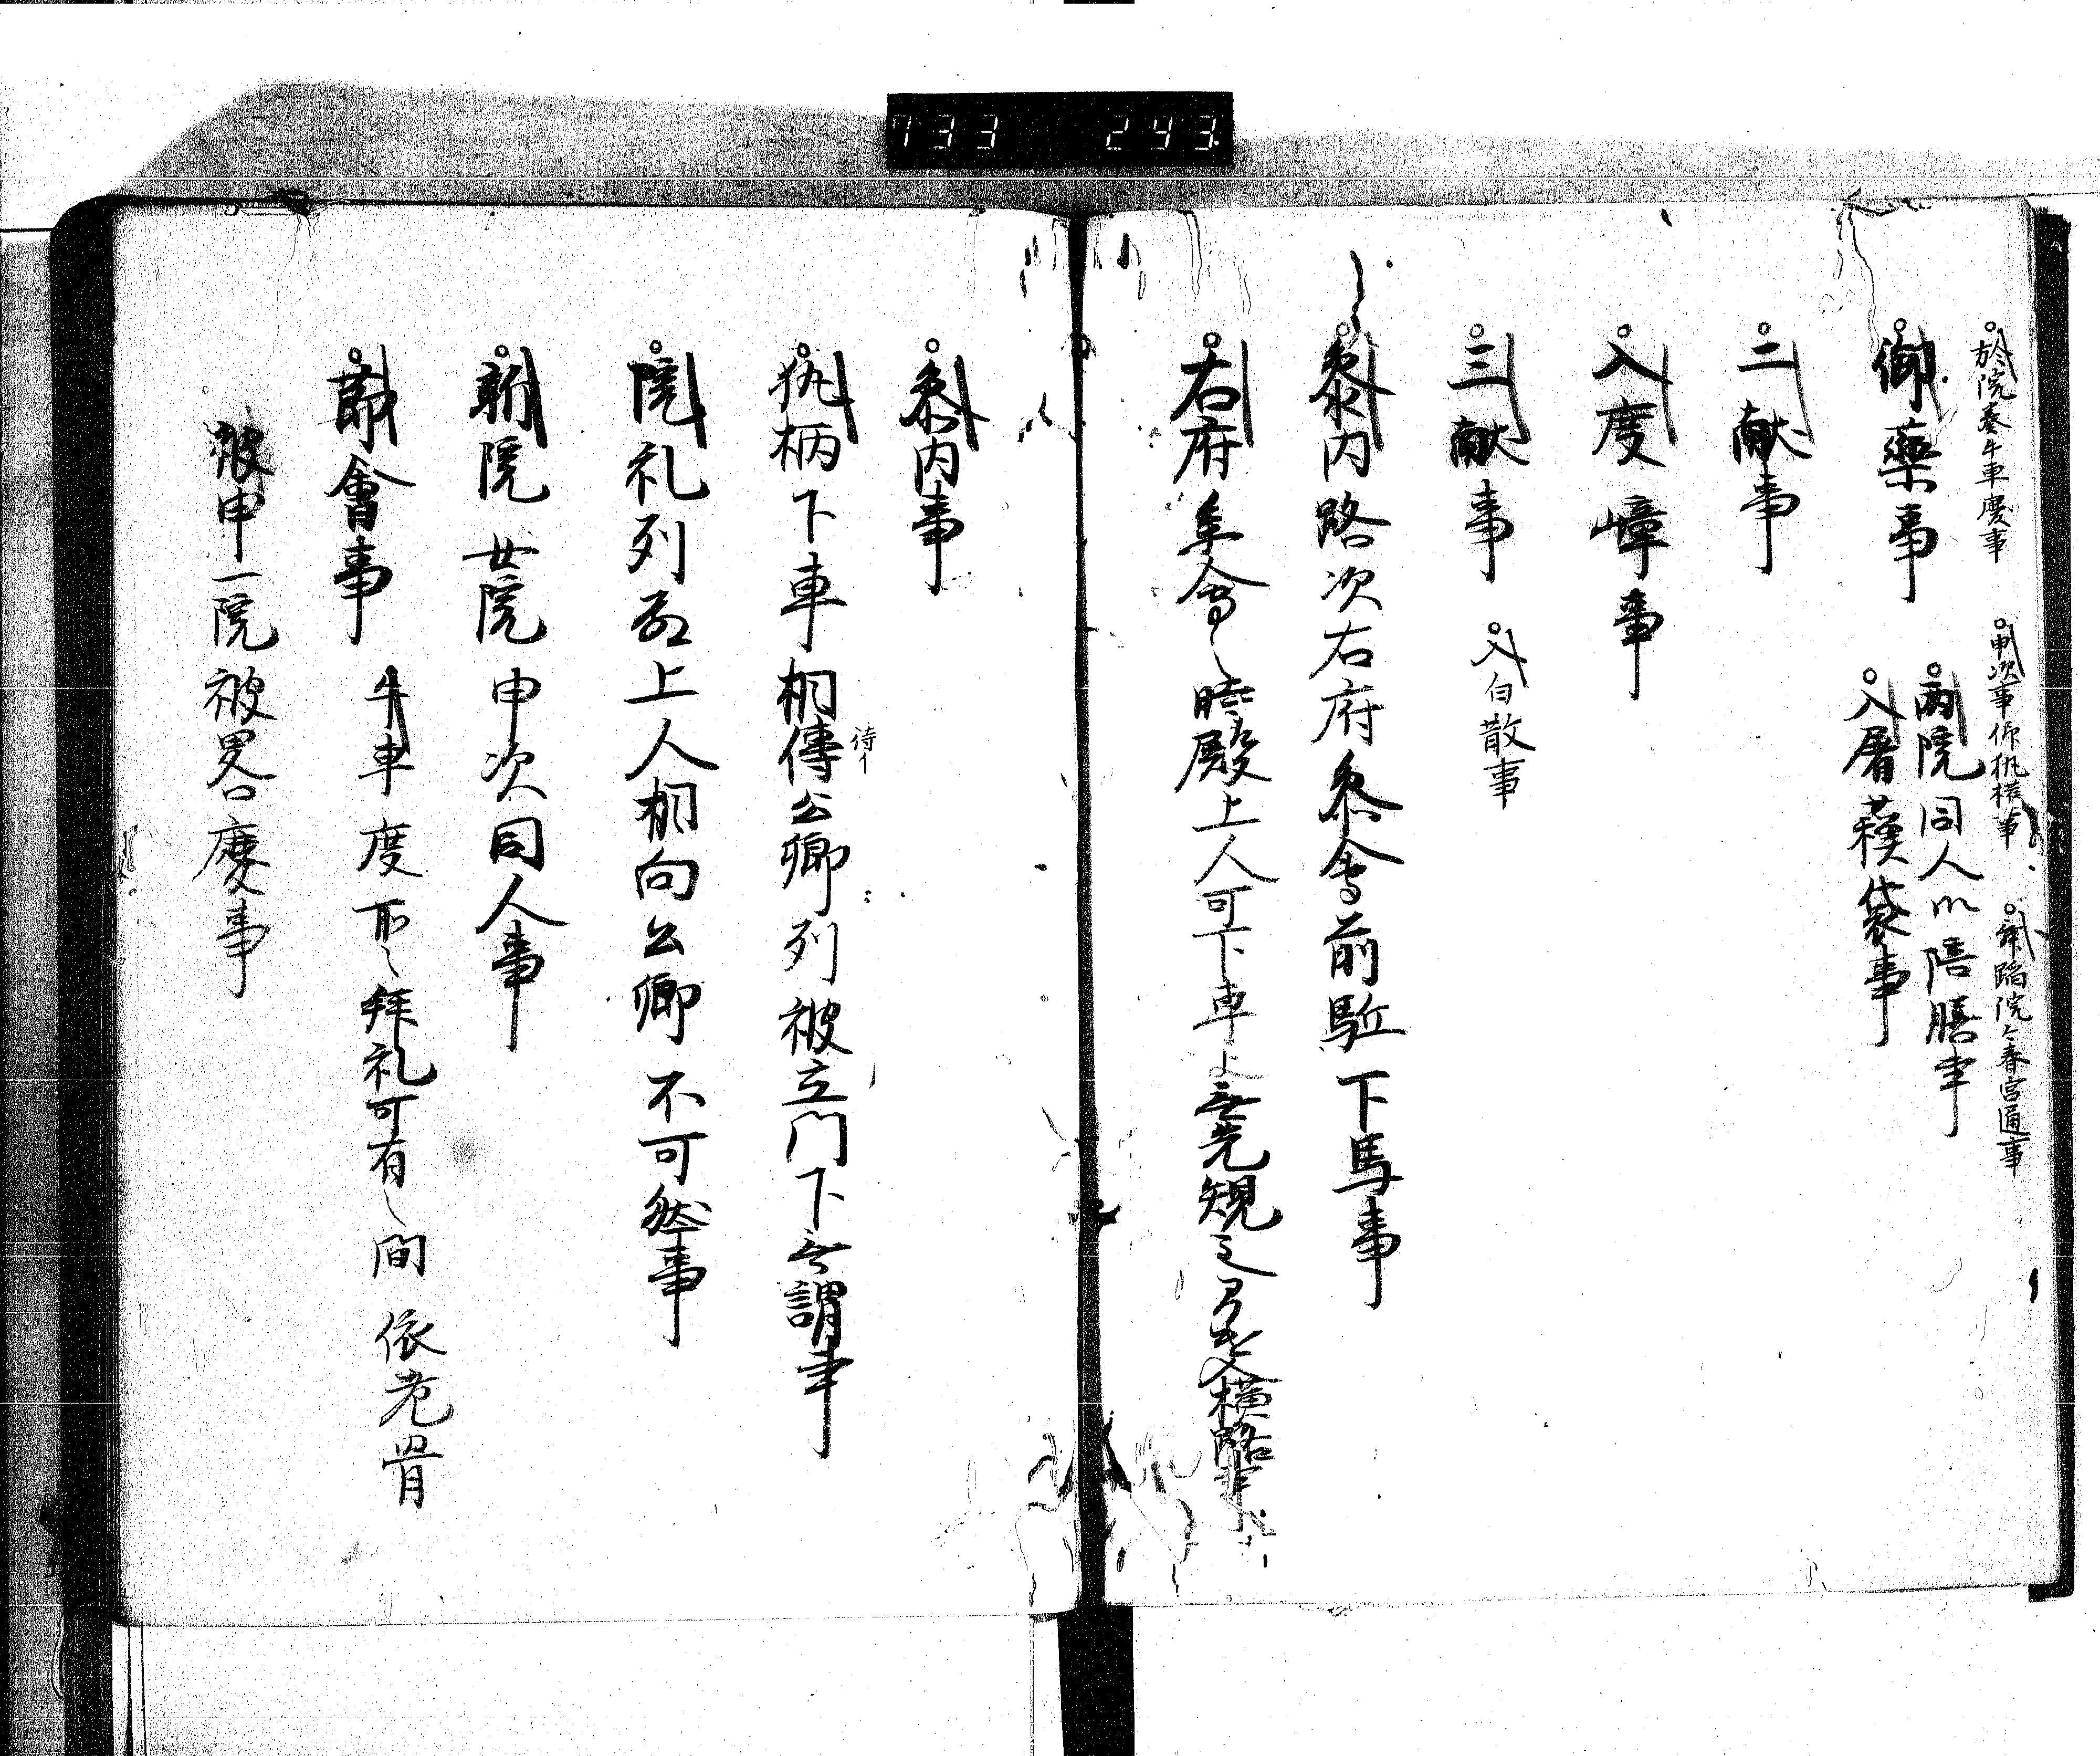 733 293
於院奏牛車慶事 申次事 仰執楾事 院今春宮通事
御藥事 両院同人ハ陪膳事
入屠蘓袋事
二献事
入度嶂事
三献事 入白散事
参内路次右府参會前駈下馬事
右府年會之時殿上人可下車 無先規之 横路事
参内事
執柄下車相傳公卿列被立門下無謂事
待イ
院礼列殿上人相向公卿不可然事
新院女院申次同人事
節會事 牛車慶所々拜礼可有之間依老骨
被申一院被畧慶事